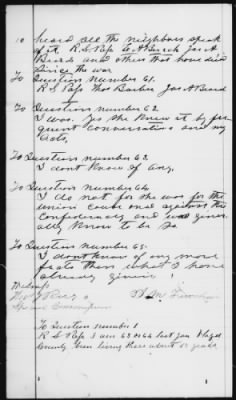 10 heard all the neighbors speak
of it. R. S. Pass Jas A
Beard and others that have died
Since the war
To Question number 61.
R. S. Pass Thos Barber Jas A Beard
To Question number 62
I was. Yes she knew it by fre
quent conversations and my
acts,
To Question number 63.
I dont know of any.
To Question number 64.
I do not for she was for the
union cause and against the
Confederacy and was gener
ally known to be so
To Question number 65.
I dont know of any more
facts than what I have
already given.
Witness
H. M.
To Question number 1
R. S. Pass I am 63 or 64 last Jan
County been living there about 50 years